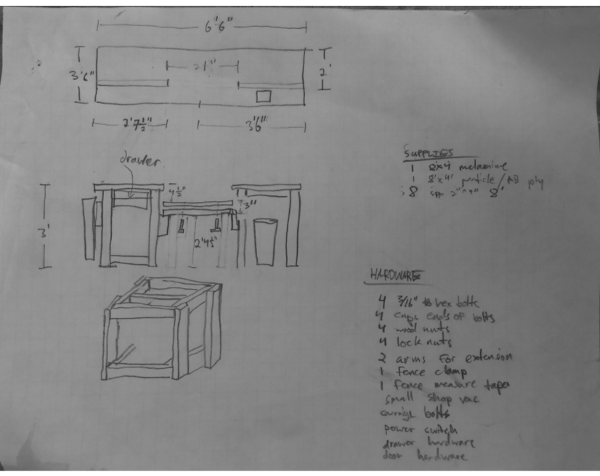 6'6"
3'6"
2'
2'7½"
3'6"
drawer
4½"
3"
3'
2'4½"
SUPPLIES
1 8x4 melamine
1 8'x4' particle / AB ply
8 2"x4" 8'
HARDWARE
4 5/16" hex bolts
4 caps ends of bolts
4 wood nuts
4 lock nuts
2 arms for extension
1 fence clamp
1 fence measure tape
small shop vac
carriage bolts
power switch
drawer hardware
door hardware